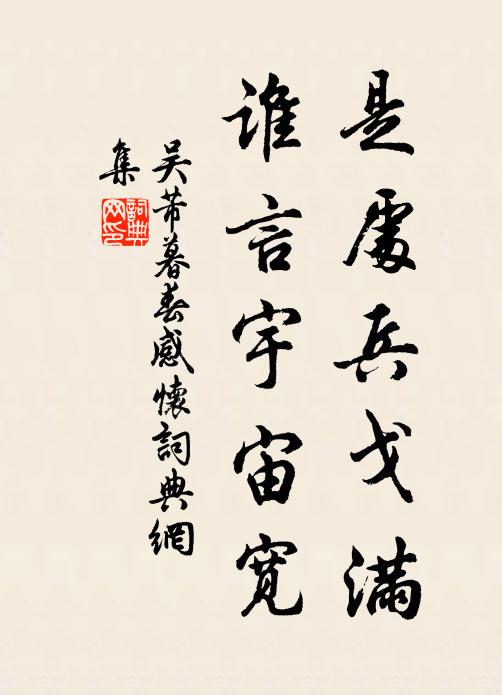 是處兵戈滿
誰言宇宙寬
吴芾暮春感懷詞典網
集
詞典
网印